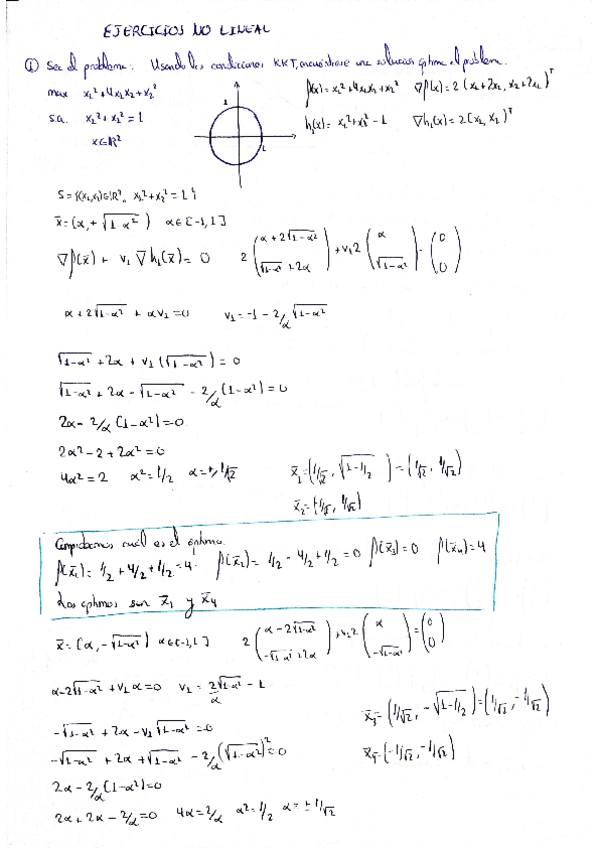 EJERCICIOS NO LINEAL
① Sea el problema. Usando las condiciones KKT, encuéntrese una solución óptima el problema.
max x₁²+4x₁x₂+x₂² f(x)=x₁²+4x₁x₂+x₂² ∇f(x)=2(x₁+2x₂, x₂+2x₁)ᵀ
s.a. x₁²+x₂²=1 h₁(x)=x₁²+x₂²-1 ∇h₁(x)=2(x₁,x₂)ᵀ
x∈ℝ²
1
1
S={(x₁,x₂)∈ℝ², x₁²+x₂²=1}
x̄=(α,+√1-α²) α∈[-1,1]
∇f(x̄)+ v₁∇h₁(x̄)=0 2(α+2√1-α², √1-α²+2α)+v₁2(α, √1-α²)=(0, 0)
α+2√1-α²+αv₁=0 v₁=-1-2/α√1-α²
√1-α²+2α+v₁(√1-α²)=0
√1-α²+2α-√1-α²-2/α(1-α²)=0
2α-2/α(1-α²)=0
2α²-2+2α²=0
4α²=2 α²=1/2 α=±1/√2 x̄₁=(1/√2, √1-1/2)=(1/√2, 1/√2)
x̄₂=(-1/√2, 1/√2)
Comprobamos cuál es el óptimo.
f(x̄₁)=1/2+4/2+1/2=4 f(x̄₂)=1/2-4/2+1/2=0 f(x̄₃)=0 f(x̄₄)=4
Los óptimos son x̄₁ y x̄₄
x̄=(α,-√1-α²) α∈[-1,1] 2(α-2√1-α², -√1-α²+2α)+v₁2(α, -√1-α²)=(0, 0)
α-2√1-α²+v₁α=0 v₁=2√1-α²/α-1
-√1-α²+2α-v₁√1-α²=0 x̄₃=(1/√2, -√1-1/2)=(1/√2, -1/√2)
-√1-α²+2α+√1-α²-2/α(√1-α²)²=0 x̄₄=(-1/√2, -1/√2)
2α-2/α(1-α²)=0
2α+2α-2/α=0 4α=2/α α²=1/2 α=±1/√2